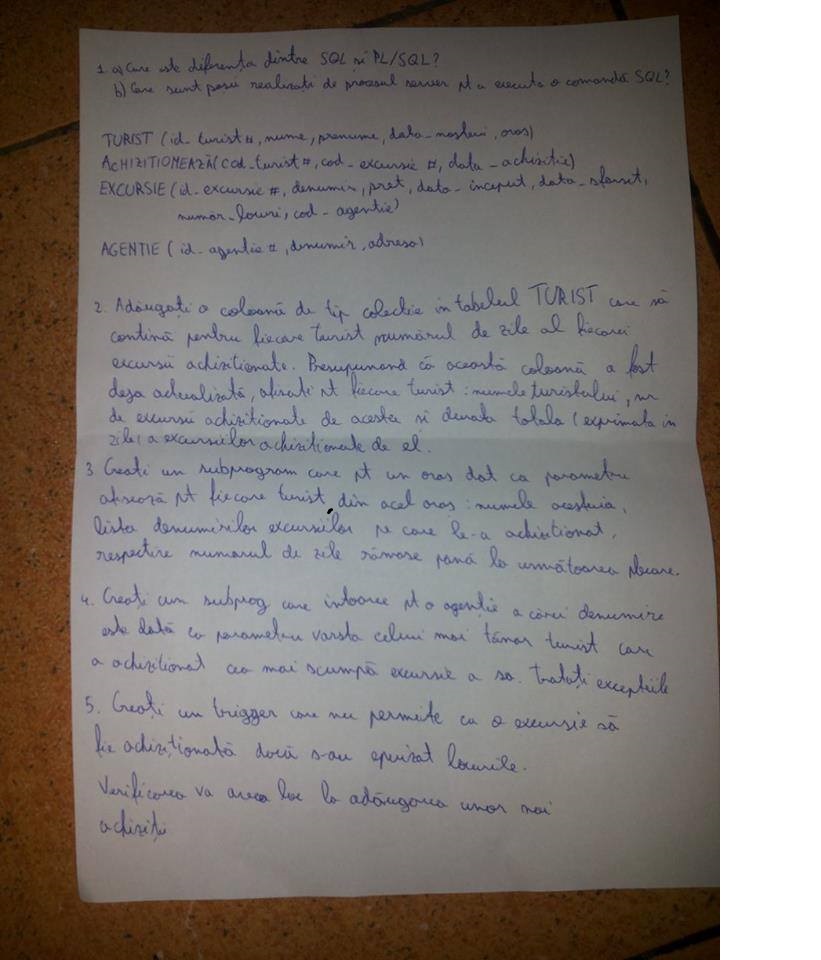 1. a) Care este diferența dintre SQL și PL/SQL?
b) Care sunt pașii realizați de procesul server pt a executa o comandă SQL?
TURIST (id_turist#, nume, prenume, data_nasterii, oras)
ACHIZITIONEAZĂ(cod_turist#, cod_excursie #, data_achizitie)
EXCURSIE (id_excursie #, denumire, pret, data_inceput, data_sfarsit,
numar_locuri, cod_agentie)
AGENTIE ( id_agentie #, denumire, adresa)
2. Adăugați o coloană de tip colectie in tabelul TURIST care să
contină pentru fiecare turist numărul de zile al fiecarei
excursii achizitionate. Presupunand că această coloană a fost
deja actualizată, afisati pt fiecare turist: numele turistului, nr
de excursii achizitionate de acesta si durata totala (exprimata in
zile) a excursiilor achizitionate de el.
3 Creati un subprogram care pt un oras dat ca parametru
afisează pt fiecare turist din acel oras: numele acestuia,
lista denumirilor excursiilor pe care le-a achizitionat,
respectiv numarul de zile rămase pană la următoarea plecare.
4. Creați un subprog care intoarce pt o agenție a cărei denumire
este dată ca parametru varsta celui mai tânar turist care
a achizitionat cea mai scumpă excursie a sa. Tratati excepțiile
5. Creați un trigger care nu permite ca o excursie să
fie achiziționată dacă s-au epuizat locurile.
Verificarea va avea loc la adăugarea unor noi
achiziți